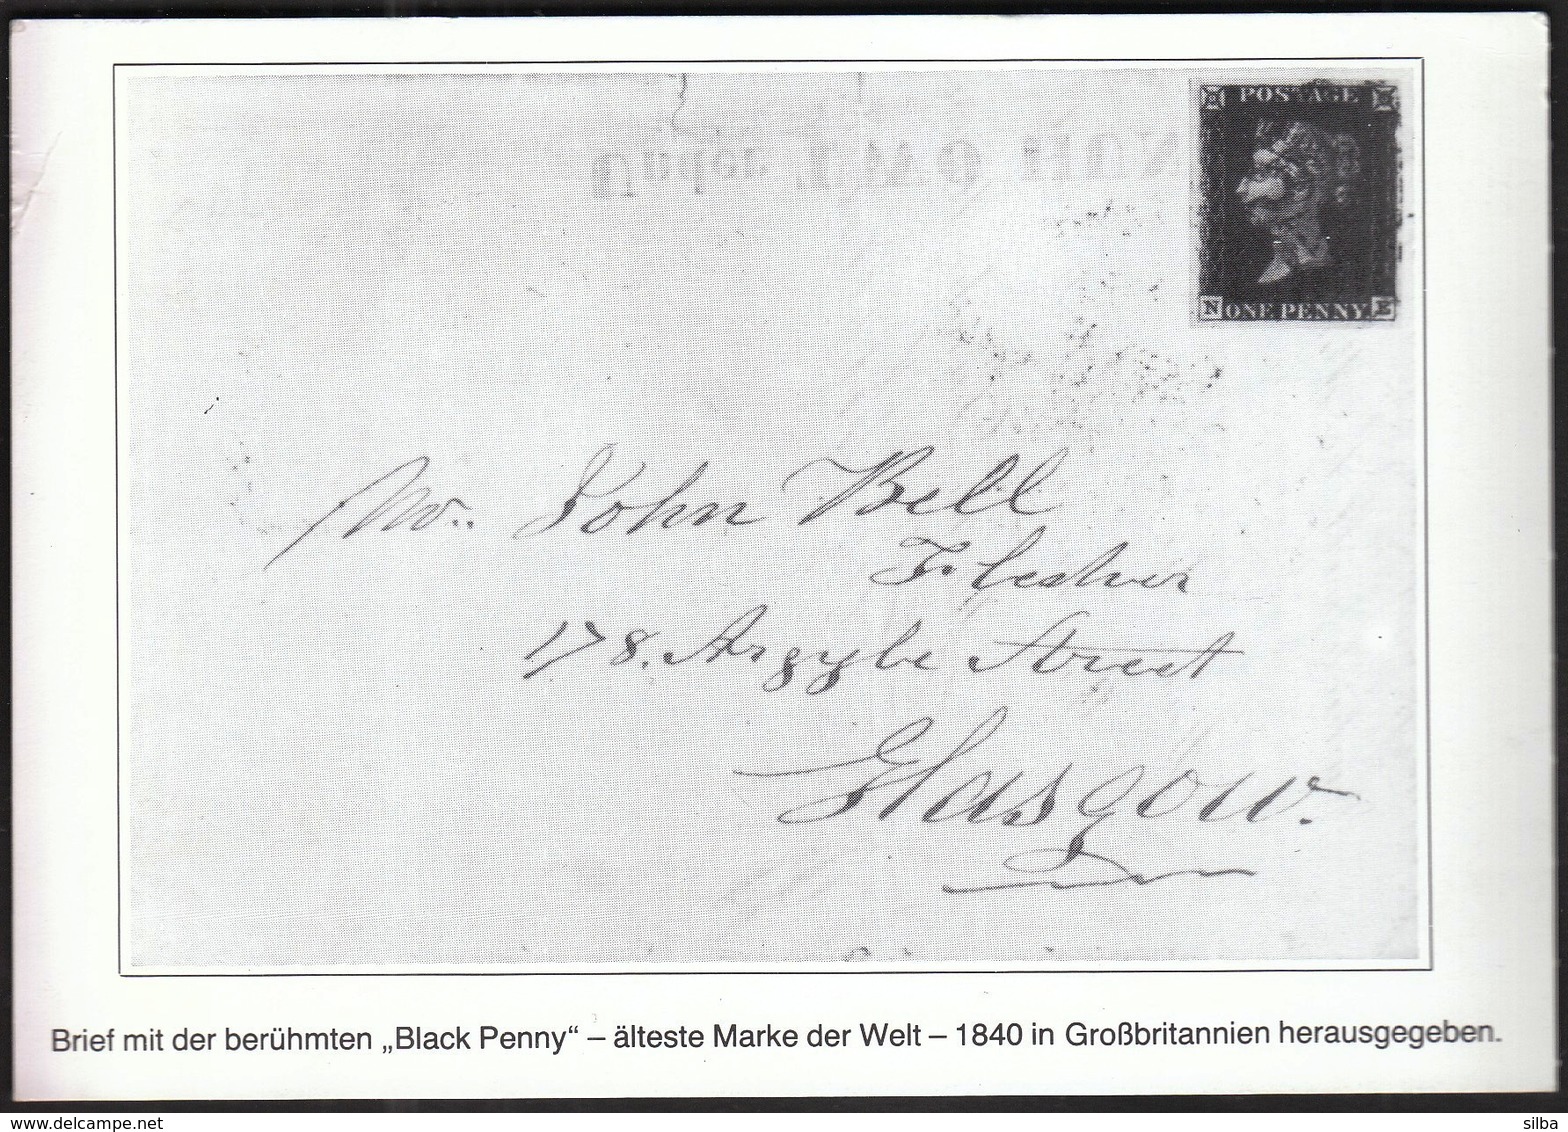 POSTAGE
N ONE PENNY
Mr. John Bell
Flesher
178. Argyle Street
Glasgow.
Brief mit der berühmten „Black Penny“ – älteste Marke der Welt – 1840 in Großbritannien herausgegeben.
www.delcampe.net
silba